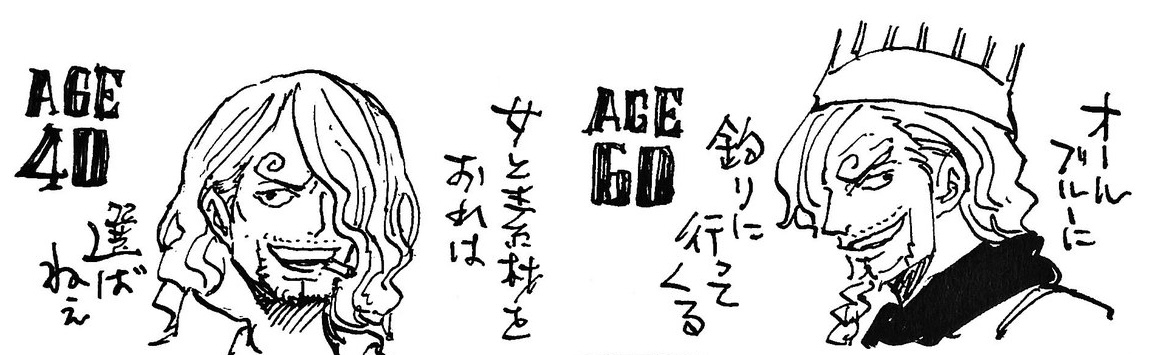 AGE
40
女と食材を
おれは
選ば
ねェ
AGE
60
オール
ブルーに
釣りに
行って
くる